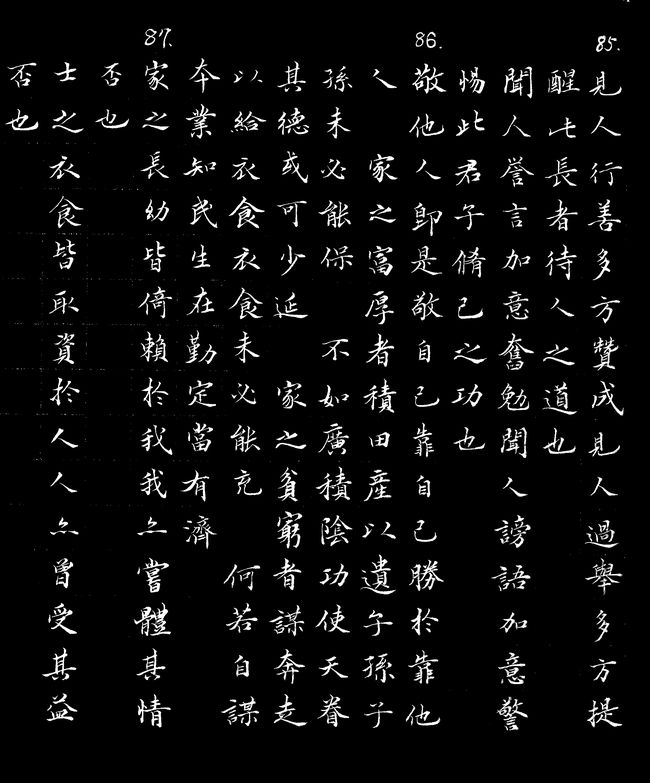 85.
見人行善多方贊成見人過舉多方提
醒此長者待人之道也
聞人譽言加意奮勉聞人謗語加意警
惕此君子脩己之功也
86.
敬他人即是敬自己靠自己勝於靠他
人　家之富厚者積田產以遺子孫子
孫未必能保　不如廣積陰功使天眷
其德或可少延　家之貧窮者謀奔走
以給衣食衣食未必能充　何若自謀
夲業知民生在勤定當有濟
87.
家之長幼皆倚賴於我我亦嘗體其情
否也
士之衣食皆取資於人人亦曾受其益
否也